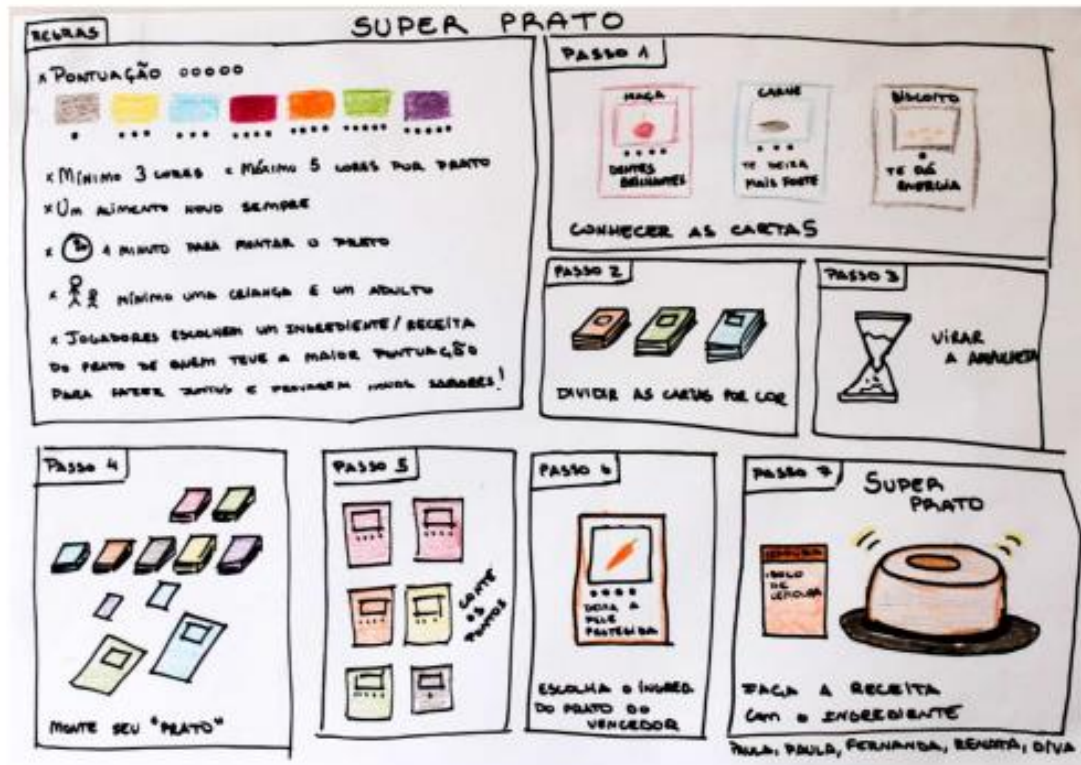 SUPER PRATO
REGRAS
x PONTUAÇÃO ooooo
x MÍNIMO 3 CORES x MÁXIMO 5 CORES POR PRATO
x UM ALIMENTO NOVO SEMPRE
x 1 MINUTO PARA MONTAR O PRATO
x MÍNIMO UMA CRIANÇA E UM ADULTO
x JOGADORES ESCOLHEM UM INGREDIENTE/RECEITA
DO PRATO DE QUEM TEVE A MAIOR PONTUAÇÃO
PARA FAZER JUNTOS E PROVAREM NOVOS SABORES!
PASSO 1
MAÇA
DENTES
BRILHANTES
CARNE
TE DEIXA
MAIS FORTE
BISCOITO
TE DÁ
ENERGIA
CONHECER AS CARTAS
PASSO 2
DIVIDIR AS CARTAS POR COR
PASSO 3
VIRAR
A AMPULHETA
PASSO 4
MONTE SEU "PRATO"
PASSO 5
CONTE
OS
PONTOS
PASSO 6
DEIXA A
PELE
PROTEGIDA
ESCOLHA O INGRED.
DO PRATO DO
VENCEDOR
PASSO 7
SUPER
PRATO
CENOURA
BOLO
DE
CENOURA
FAÇA A RECEITA
COM O INGREDIENTE
PAULA, PAULA, FERNANDA, RENATA, DIVA